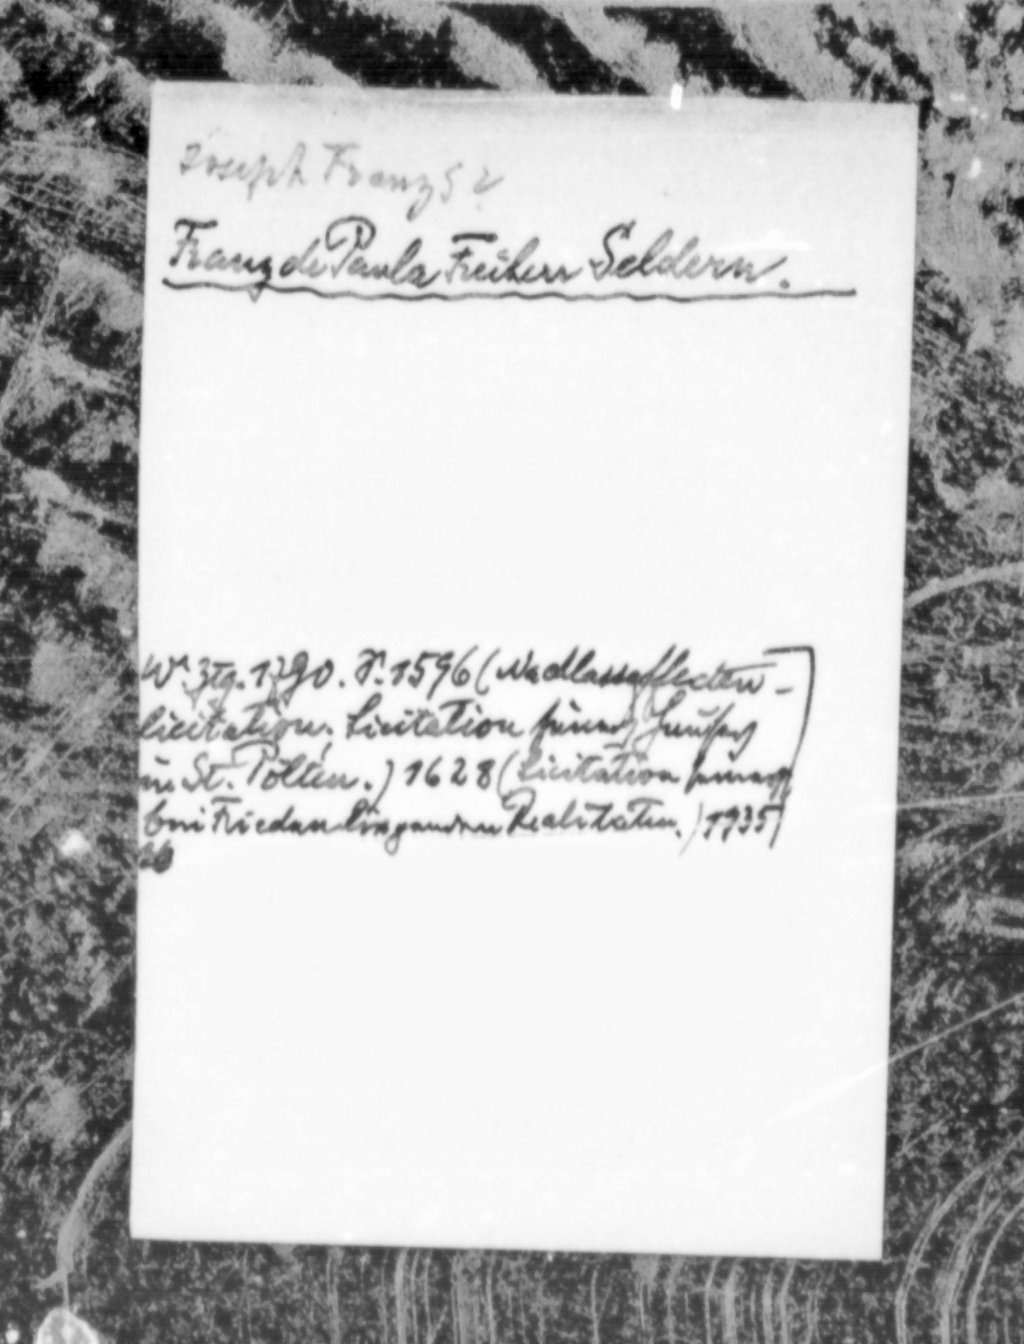 Joseph Franz S ?
Franz de Paula Freiherr Seldern.
Wr. Ztg. 1790. S. 1596 (Nachlasseffecten-
licitation; Licitation seines Hauses
in St. Pölten.) 1628 (Licitation seiner
bei Friedau liegenden Realitäten.) 1935